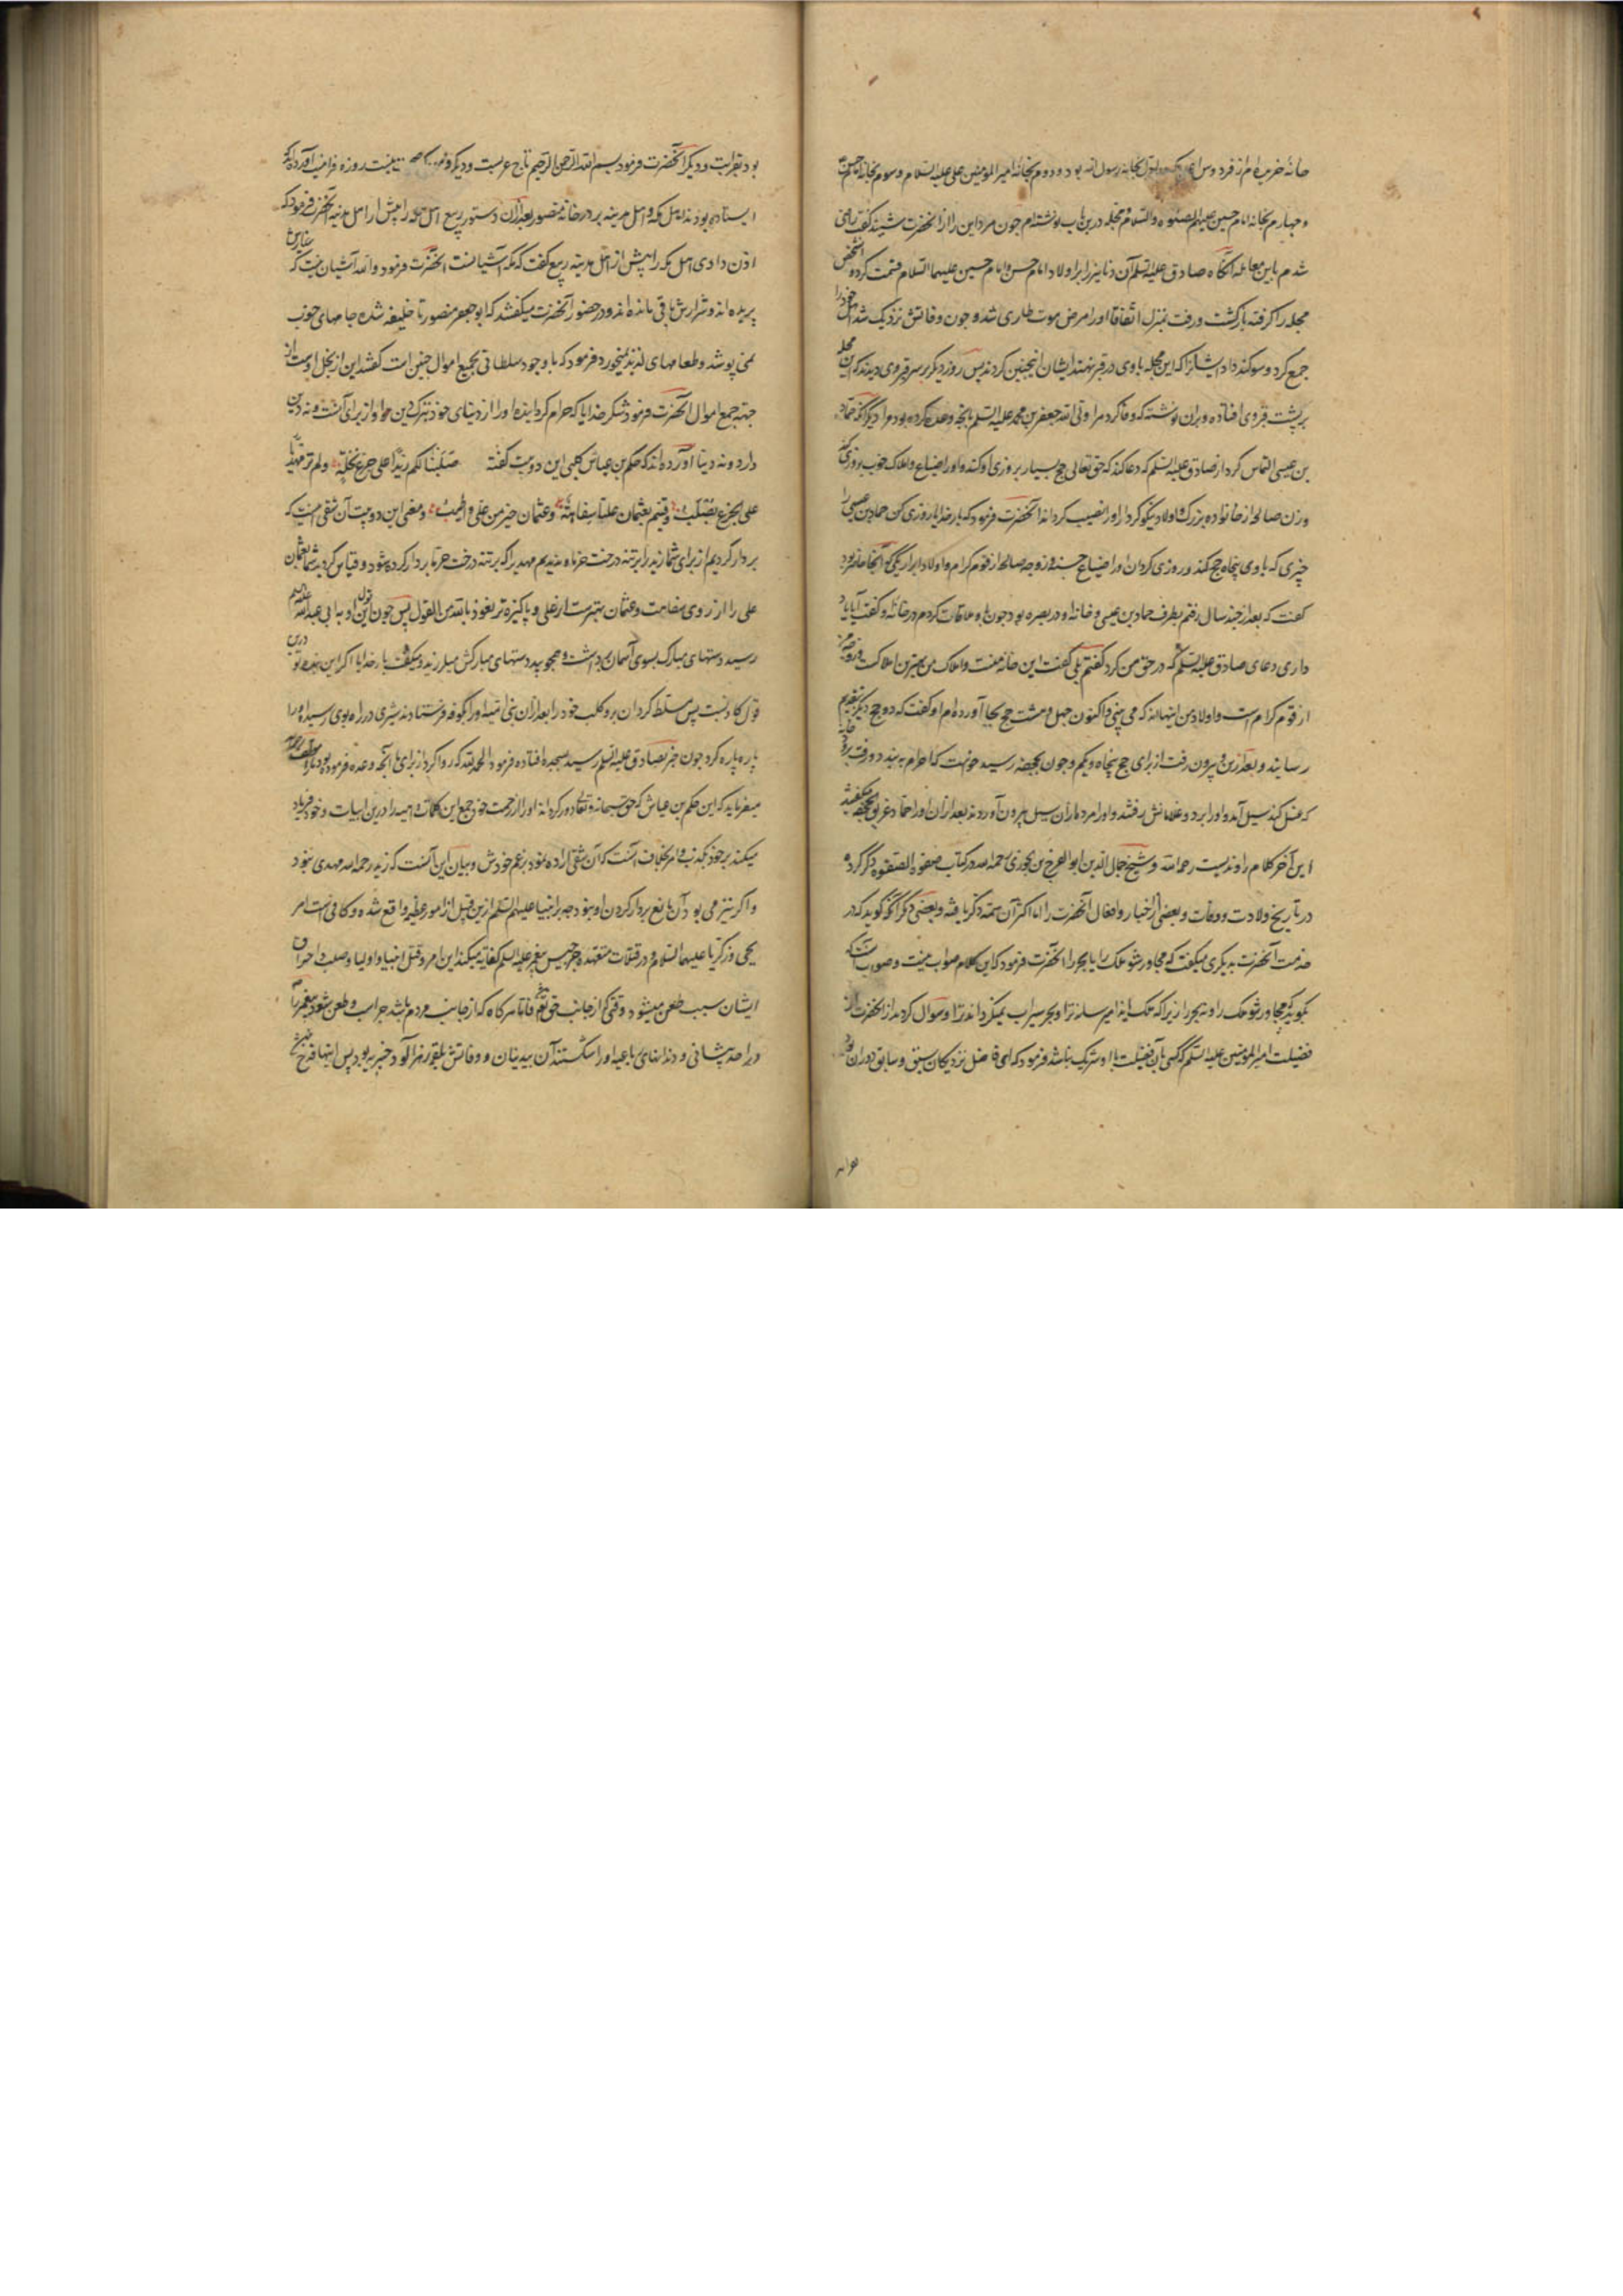 خانهٔ خریده‌ام از فردوس بخانهٔ رسول الله بود و دوم بخانهٔ امیرالمؤمنین علی علیه السلام و سوم بخانهٔ امام حسن
و چهارم بخانهٔ امام حسین علیهم الصلوه والسلام و مجله درین باب نوشته‌ام چون مرد این را از آنحضرت شنید گفت راضی
شدم باین معامله آنگاه صادق علیه السلم آن دنانیر را بر اولاد امام حسن و امام حسین علیهما السلام قسمت کرد و آن شخص
مجله را گرفته بازگشت و رفت بمنزل اتفاقا او را مرض موت طاری شد و چون وفاتش نزدیک شد اهل خود را
جمع کرد و سوگند داد ایشانرا که این مجله با وی در قبر نهند ایشان اینچنین کردند پس روز دیگر بر سر قبر وی دیدند که این مجله
بر پشت قبر وی افتاده و بران نوشته که وفا کرد مرا ولی الله جعفر بن محمد علیه السلم بآنچه وعده کرده بود مرا دیگر آنکه حماد
بن عیسی التماس کرد از صادق علیه السلم که دعا کند که حق تعالی حج بسیار بروزی او کند و او را ضیاع و املاک خوب بروزی کند
و زن صالحه از خانواده بزرگ و اولاد نیکو کردار او را نصیب کرداند آنحضرت فرمود که بار خدایا روزی کن حماد بن عیسی را
چیزی که با وی پنجاه حج کند و روزی کردان او را ضیاع حسنه و زوجهٔ صالحه از قوم کرام و اولاد ابرار یکی که آنجا حاضر بود
گفت که بعد از چند سال رفتم بطرف حماد بن عیسی و خانهٔ او در بصره بود چون با او ملاقات کردم در خانهٔ او گفت آیا یاد
داری دعای صادق علیه السلم که در حق من کرد گفتم بلی گفت این خانهٔ منست و املاک من بهترین املاکست و زوجهٔ من
از قوم کرام است و اولاد من اینهااند که می بینی و اکنون چهل و هشت حج بجا آورده‌ام او گفت که دو حج دیگر بتقدیم
رسانید و بعد ازین بیرون رفت از برای حج پنجاه و یکم و چون بجحفه رسید خواست که احرام به بندد و رفت
که غسل کند سیل آمد و او را برد و غلامانش رفتند و او را مرده از آن سیل بیرون آوردند بعد از آن او را حماد غریق جحفه میگفتند
این آخر کلام راوندیست رحمه الله و شیخ جمال الدین ابو الفرج بن جوزی رحمه الله در کتاب صفوة الصفوه ذکر کرده
در تاریخ ولادت و وفات و بعضی از اخبار و افعال آنحضرت را اما اکثر آن سمت ذکر یافته و بعضی دیگر آنکه گویند که در
خدمت آنحضرت دیگری میگفت که مجاور شو ملک را یا بحر را آنحضرت فرمود که این کلام صواب نیست و صواب آنست که
بگوید که مجاور شو ملک را و نه بحر را زیرا که ملک ایذا میرساند ترا و بحر سیراب نمیگرداند ترا و سوال کردند از آنحضرت از
فضیلت امیرالمؤمنین علیه السلم که کسی بآن فضیلت با او شریک نباشد فرمود که ای فاضل نزدیکان سبق و سابق دوران
بود بقرابت و دیگر آنحضرت فرمود بسم الله الرحمن الرحیم تاج عربست و دیگر
ایستاده بودند اهل مکه و اهل مدینه بر در خانهٔ منصور بعد از آن دستور ربیع اهل مکه را پیش از اهل مدینه آنحضرت فرمود که
اذن دادی اهل مکه را پیش از اهل مدینه ربیع گفت که مکه آشیانست آنحضرت فرمود والله آشیان نیست که
پریده‌اند و شرارش باقی مانده‌اند و در حضور آنحضرت میگفتند که ابو جعفر منصور تا خلیفه شده جامهای خوب
نمی پوشد و طعامهای لذیذ نمیخورد فرمود که با وجود سلطانی بجمیع اموال چنین است گفتند این از بخل اوست از
جهة جمع اموال آنحضرت فرمود شکر خدایا که حرام گردانیده او را از دنیای خود بترک دین خود او از برای آنست و نه دین
دارد و نه دنیا آورده‌اند که حکم بن عباس کلبی این دو بیت گفته صلبنا لکم زیدا علی جذع نخلة ولم نر مهدیا
علی الجذع یصلب وقستم بعثمان علیا سفاهة وعثمان خیر من علی واطیب و معنی این دو بیت آن شقی اینست که
بر دار کردیم از برای شما زید را بر تنهٔ درخت خرما و ندیدیم مهدی را که بر تنهٔ درخت خرما بر دار کرده شود و قیاس کردید شما بعثمان
علی را از روی سفاهت و عثمان بهترست از علی و پاکیزه تر نعوذ بالله من القول پس چون این قول او به ابی عبدالله علیه السلم
رسید دستهای مبارک بسوی آسمان برداشت و همچو بید دستهای مبارکش میلرزید و میگفت بار خدایا اگر این بندهٔ تو درین
قول کاذبست پس مسلط گردان برو کلب خود را بعد از آن بنی امیه او را بکوفه فرستادند شیری در راه بوی رسید او را
پاره پاره کرد چون خبر بصادق علیه السلم رسید بسجده افتاده فرمود الحمد لله که روا کرد از برای ما آنچه وعده فرموده بود
میفرماید که این حکم بن عیاش که حق سبحانه و تعالی دور گرداند او را از رحمت خود جمع این کلمات واهیه را درین ابیات و خود فریاد
میکند بر خود بکذب و امر بخلاف آنست که آن شقی اراده نمود بزعم خودش و بیان این آنست که زید رحمه الله مهدی نبود
و اگر نیز می بود آن مانع بردار کردن او نبود چه بر انبیا علیهم السلم ازین قبیل از امور عظیمه واقع شده و کافی است امر
یحیی و زکریا علیهما السلام و در قتلات متعدده جرجیس پیغمبر علیه السلم کفایه میکند این امر و قتل انبیا و اولیا و صلب و احراق
ایشان سبب طعن میشود وقتی که از جانب حق تعالی باشد فاما هر گاه که از جانب مردم باشد چرا سبب طعن شود پیغمبر را
در احد پیشانی و دندانهای رباعیه او را شکستند آن بیدینان و وفاتش بلقمهٔ زهر آلود خیبریه بود پس اینها قدح